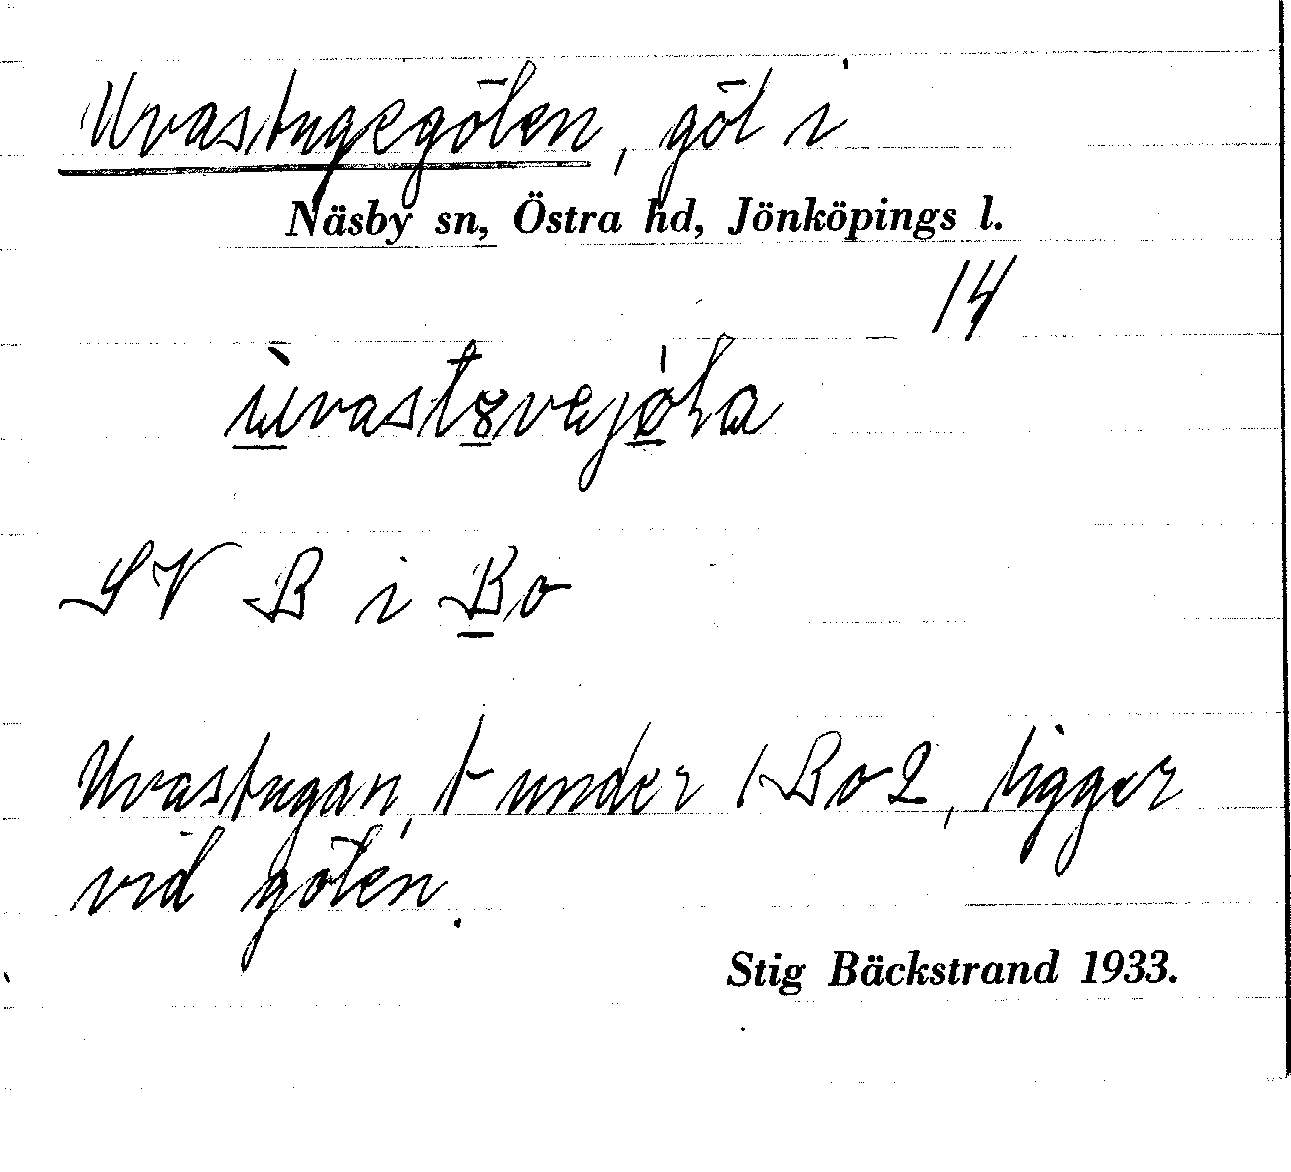 Uvastugegölen, göl i
Näsby sn, Östra hd, Jönköpings l.
14
SV B i Bo
Uvastugan, t under 1 Bo 2, ligger
vid gölen.
Stig Bäckstrand 1933.